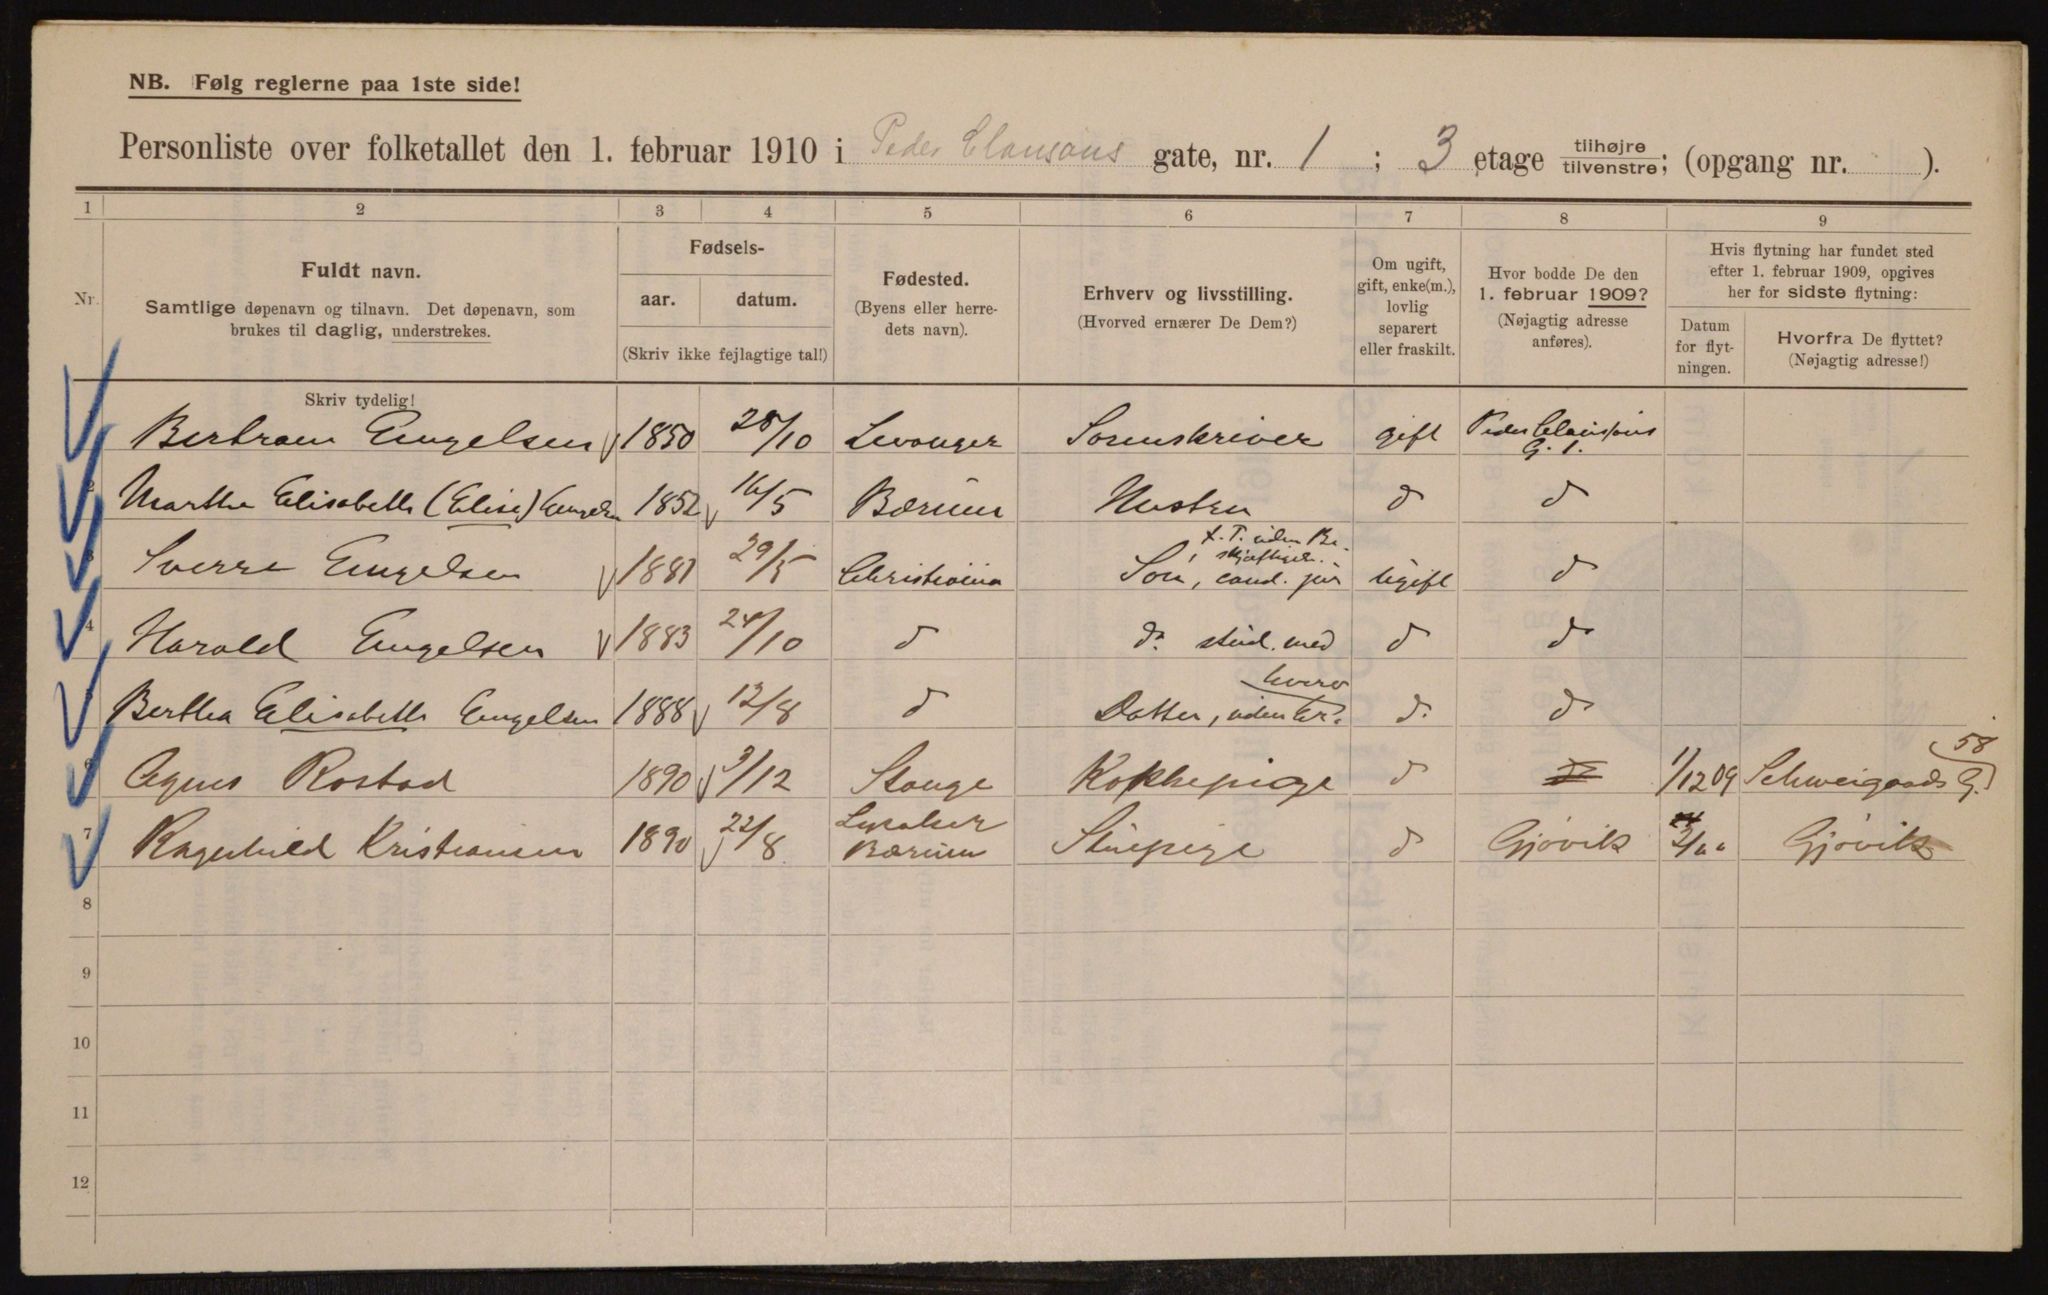 NB. Følg reglerne paa 1ste side!
Personliste over folketallet den 1. februar 1910 i Peder Clausøns gate, nr. 1 ; 3 etage tilhøjre tilvenstre; (opgang nr. ).
1 2 3 4 5 6 7 8 9
Nr.
Fuldt navn.
Samtlige døpenavn og tilnavn. Det døpenavn, som
brukes til daglig, understrekes.
Skriv tydelig!
Fødsels-
aar. datum.
(Skriv ikke fejlagtige tal!)
Fødested.
(Byens eller herre-
dets navn).
Erhverv og livsstilling.
(Hvorved ernærer De Dem?)
Om ugift,
gift, enke(m.),
lovlig
separert
eller fraskilt.
Hvor bodde De den
1. februar 1909?
(Nøjagtig adresse
anføres).
Hvis flytning har fundet sted
efter 1. februar 1909, opgives
her for sidste flytning:
Datum
for flyt-
ningen.
Hvorfra De flyttet?
(Nøjagtig adresse!)
Bertram Engelsen 1850 28/10 Levanger Sorenskriver gift Peder Claussøns
G. 1.
2 Martha Elisabeth (Elise) Engelsen 1852 16/5 Bærum Hustru d d
f. T. uden Be-
skjæftigelse
3 Sverre Engelsen 1881 29/5 Christiania Søn, cand. jur ugift d
4 Harald Engelsen 1883 24/10 d do. stud. med d d
hverv
5 Bertha Elisabeth Engelsen 1888 12/8 d Datter, uden Er- d. d
58
6 Agnes Rostad 1890 3/12 Stange Kokkepige d 1/12 09 Schweigaards G.
Lysaker
7 Ragnhild Kristiansen 1890 22/8 Bærum Stuepige d Gjøvik Gjøvik
8
9
10
11
12